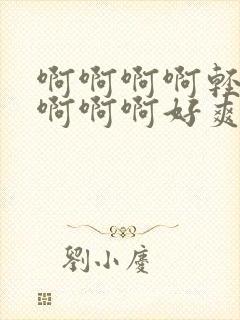 啊啊啊啊輕
啊啊啊好爽
劉小慶